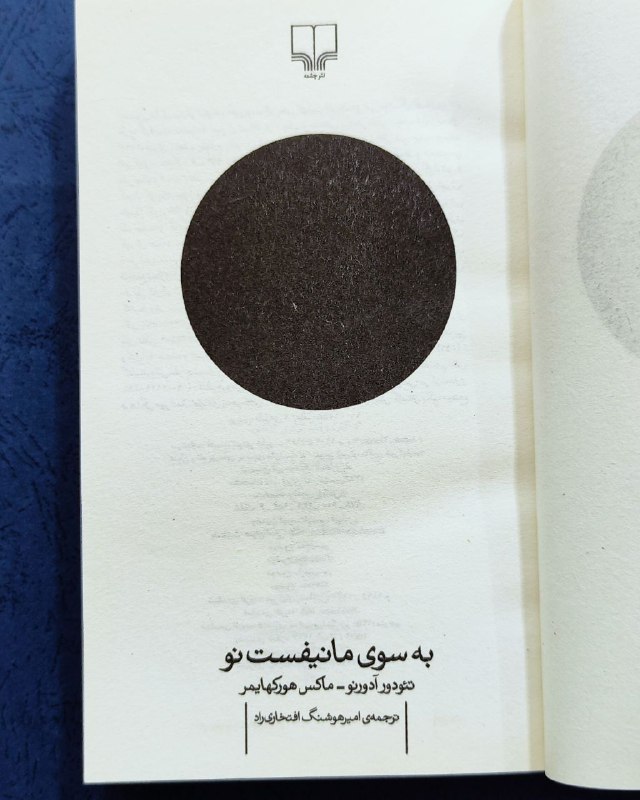 نشرچشمه
به سوی مانیفست نو
تئودور آدورنو - ماکس هورکهایمر
ترجمه‌ی امیرهوشنگ افتخاری‌راد